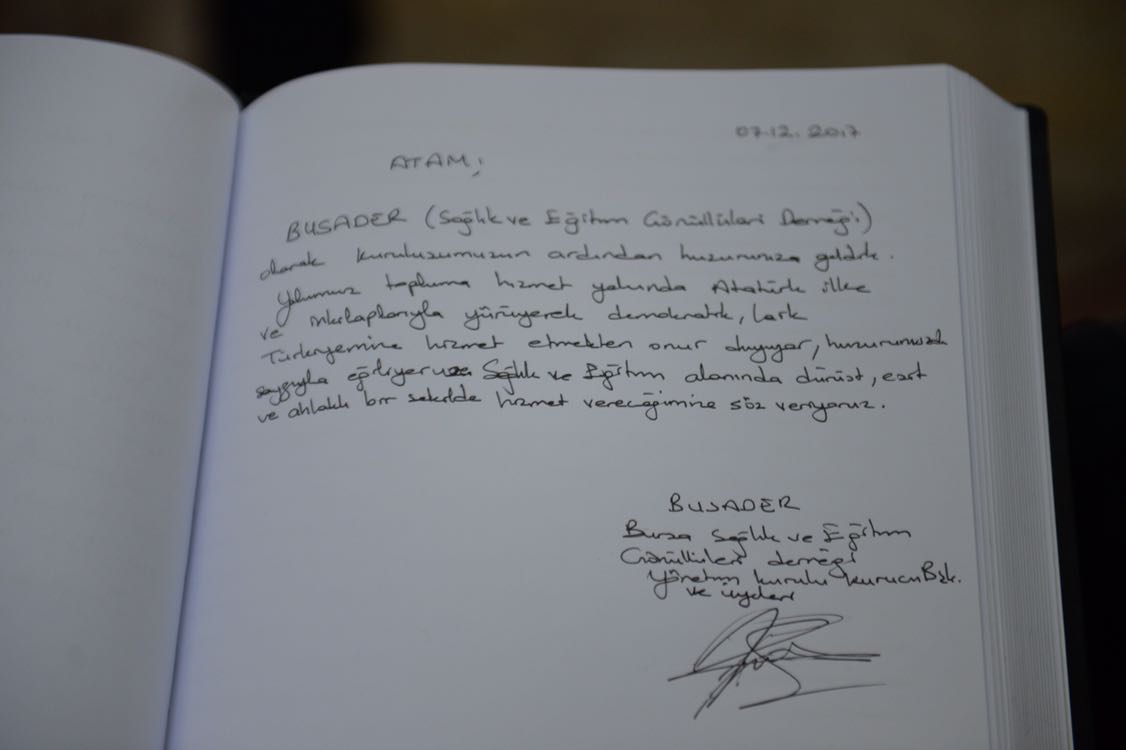 07.12.2017
ATAM;
BUSADER (Sağlık ve Eğitim Gönüllüleri Derneği)
olarak kuruluşumuzun ardından huzurunuza geldik.
Yolumuz topluma hizmet yolunda Atatürk ilke
ve inkılaplarıyla yürüyerek demokratik, Laik
Türkiyemize hizmet etmekten onur duyuyor, huzurunuzda
saygıyla eğiliyoruz. Sağlık ve Eğitim alanında dürüst, eşit
ve ahlaklı bir şekilde hizmet vereceğimize söz veriyoruz.
BUSADER
Bursa Sağlık ve Eğitim
Gönüllüleri derneği
Yönetim kurulu kurucu Bşk.
ve üyeleri